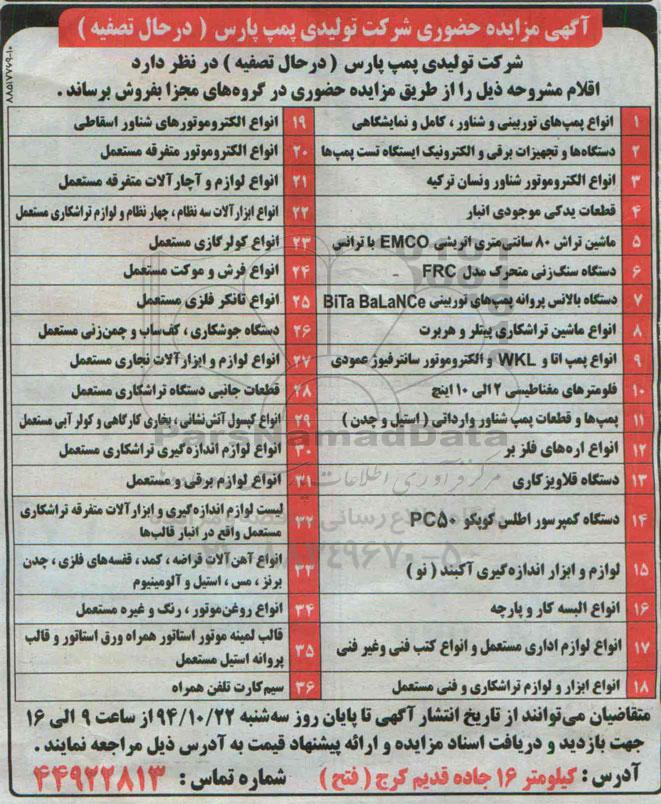 آگهی مزایده حضوری شرکت تولیدی پمپ پارس ( درحال تصفیه )
شرکت تولیدی پمپ پارس ( درحال تصفیه ) در نظر دارد
اقلام مشروحه ذیل را از طریق مزایده حضوری در گروه‌های مجزا بفروش برساند .
۸۸۵۱۷۷۶۹-۱۰
۱ انواع پمپ‌های توربینی و شناور ، کامل و نمایشگاهی
۲ دستگاه‌ها و تجهیزات برقی و الکترونیک ایستگاه تست پمپ‌ها
۳ انواع الکتروموتور شناور ونسان ترکیه
۴ قطعات یدکی موجودی انبار
۵ ماشین تراش ۸۰ سانتی‌متری اتریشی EMCO با ترانس
۶ دستگاه سنگ‌زنی متحرک مدل FRC -
۷ دستگاه بالانس پروانه پمپ‌های توربینی BiTa BaLaNCe
۸ انواع ماشین تراشکاری پیتلر و هربرت
۹ انواع پمپ اتا و WKL و الکتروموتور سانترفیوژ عمودی
۱۰ فلومترهای مغناطیسی ۲ الی ۱۰ اینچ
۱۱ پمپ‌ها و قطعات پمپ شناور وارداتی ( استیل و چدن )
۱۲ انواع اره‌های فلز بر
۱۳ دستگاه قلاویزکاری
۱۴ دستگاه کمپرسور اطلس کوپکو PC۵۰
۱۵ لوازم و ابزار اندازه‌گیری آکبند ( نو )
۱۶ انواع البسه کار و پارچه
۱۷ انواع لوازم اداری مستعمل و انواع کتب فنی وغیر فنی
۱۸ انواع ابزار و لوازم تراشکاری و فنی مستعمل
۱۹ انواع الکتروموتورهای شناور اسقاطی
۲۰ انواع الکتروموتور متفرقه مستعمل
۲۱ انواع لوازم و آچارآلات متفرقه مستعمل
۲۲ انواع ابزارآلات سه نظام ، چهار نظام و لوازم تراشکاری مستعمل
۲۳ انواع کولر گازی مستعمل
۲۴ انواع فرش و موکت مستعمل
۲۵ انواع تانکر فلزی مستعمل
۲۶ دستگاه جوشکاری ، کف‌ساب و چمن‌زنی مستعمل
۲۷ انواع لوازم و ابزارآلات نجاری مستعمل
۲۸ قطعات جانبی دستگاه تراشکاری مستعمل
۲۹ انواع کپسول آتش‌نشانی ، بخاری کارگاهی و کولر آبی مستعمل
۳۰ انواع لوازم اندازه‌گیری تراشکاری مستعمل
۳۱ انواع لوازم برقی و مستعمل
۳۲ لیست لوازم اندازه‌گیری و ابزارآلات متفرقه تراشکاری
مستعمل واقع در انبار قالب‌ها
۳۳ انواع آهن آلات قراضه ، کمد ، قفسه‌های فلزی ، چدن
برنز ، مس ، استیل و آلومینیوم
۳۴ انواع روغن‌موتور ، رنگ و غیره مستعمل
۳۵ قالب لمینه موتور استاتور همراه ورق استاتور و قالب
پروانه استیل مستعمل
۳۶ سیم‌کارت تلفن همراه
متقاضیان می‌توانند از تاریخ انتشار آگهی تا پایان روز سه‌شنبه ۹۴/۱۰/۲۲ از ساعت ۹ الی ۱۶
جهت بازدید و دریافت اسناد مزایده و ارائه پیشنهاد قیمت به آدرس ذیل مراجعه نمایند .
آدرس : کیلومتر ۱۶ جاده قدیم کرج ( فتح ) شماره تماس : ۴۴۹۲۲۸۱۳
ParsNamadData